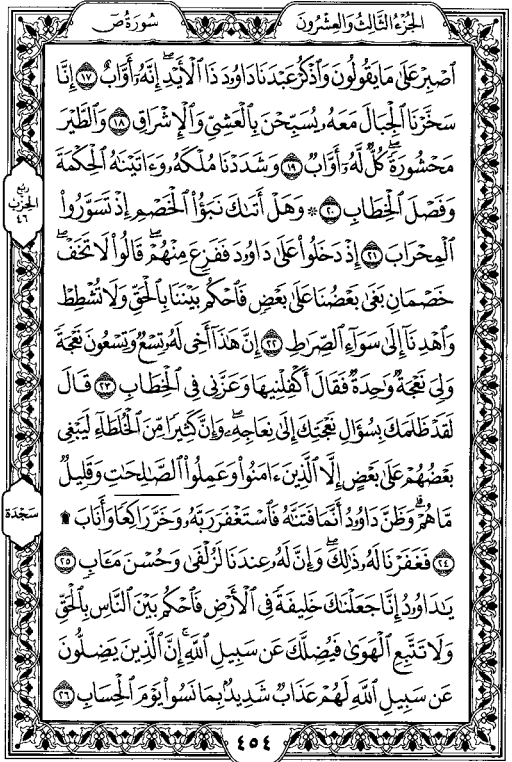 الجُزْءُ الثَّالِثُ وَالعِشْرُونَ
سُورَةُ صٓ
ٱصۡبِرۡ عَلَىٰ مَا يَقُولُونَ وَٱذۡكُرۡ عَبۡدَنَا دَاوُۥدَ ذَا ٱلۡأَيۡدِۖ إِنَّهُۥٓ أَوَّابٌ ١٧ إِنَّا
سَخَّرۡنَا ٱلۡجِبَالَ مَعَهُۥ يُسَبِّحۡنَ بِٱلۡعَشِيِّ وَٱلۡإِشۡرَاقِ ١٨ وَٱلطَّيۡرَ
مَحۡشُورَةٗۖ كُلّٞ لَّهُۥٓ أَوَّابٞ ١٩ وَشَدَدۡنَا مُلۡكَهُۥ وَءَاتَيۡنَٰهُ ٱلۡحِكۡمَةَ
وَفَصۡلَ ٱلۡخِطَابِ ٢٠ ۞ وَهَلۡ أَتَىٰكَ نَبَؤُاْ ٱلۡخَصۡمِ إِذۡ تَسَوَّرُواْ
ٱلۡمِحۡرَابَ ٢١ إِذۡ دَخَلُواْ عَلَىٰ دَاوُۥدَ فَفَزِعَ مِنۡهُمۡۖ قَالُواْ لَا تَخَفۡۖ
خَصۡمَانِ بَغَىٰ بَعۡضُنَا عَلَىٰ بَعۡضٖ فَٱحۡكُم بَيۡنَنَا بِٱلۡحَقِّ وَلَا تُشۡطِطۡ
وَٱهۡدِنَآ إِلَىٰ سَوَآءِ ٱلصِّرَٰطِ ٢٢ إِنَّ هَٰذَآ أَخِي لَهُۥ تِسۡعٞ وَتِسۡعُونَ نَعۡجَةٗ
وَلِيَ نَعۡجَةٞ وَٰحِدَةٞ فَقَالَ أَكۡفِلۡنِيهَا وَعَزَّنِي فِي ٱلۡخِطَابِ ٢٣ قَالَ
لَقَدۡ ظَلَمَكَ بِسُؤَالِ نَعۡجَتِكَ إِلَىٰ نِعَاجِهِۦۖ وَإِنَّ كَثِيرٗا مِّنَ ٱلۡخُلَطَآءِ لَيَبۡغِي
بَعۡضُهُمۡ عَلَىٰ بَعۡضٍ إِلَّا ٱلَّذِينَ ءَامَنُواْ وَعَمِلُواْ ٱلصَّٰلِحَٰتِ وَقَلِيلٞ
مَّا هُمۡۗ وَظَنَّ دَاوُۥدُ أَنَّمَا فَتَنَّٰهُ فَٱسۡتَغۡفَرَ رَبَّهُۥ وَخَرَّۤ رَاكِعٗاۤ وَأَنَابَ ۩
٢٤ فَغَفَرۡنَا لَهُۥ ذَٰلِكَۖ وَإِنَّ لَهُۥ عِندَنَا لَزُلۡفَىٰ وَحُسۡنَ مَـَٔابٖ ٢٥
يَٰدَاوُۥدُ إِنَّا جَعَلۡنَٰكَ خَلِيفَةٗ فِي ٱلۡأَرۡضِ فَٱحۡكُم بَيۡنَ ٱلنَّاسِ بِٱلۡحَقِّ
وَلَا تَتَّبِعِ ٱلۡهَوَىٰ فَيُضِلَّكَ عَن سَبِيلِ ٱللَّهِۚ إِنَّ ٱلَّذِينَ يَضِلُّونَ
عَن سَبِيلِ ٱللَّهِ لَهُمۡ عَذَابٞ شَدِيدُۢ بِمَا نَسُواْ يَوۡمَ ٱلۡحِسَابِ ٢٦
ربع
الحزب
٤٦
سَجْدَة
٤٥٤